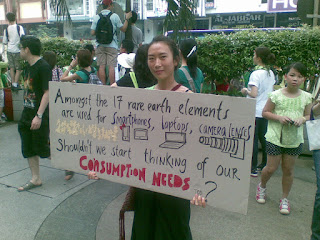 AL JAZEERAH
AMONGST THE 17 RARE EARTH ELEMENTS
ARE USED FOR SMARTPHONES, LAPTOPS, CAMERA LENSES
SHOULDN'T WE START THINKING OF OUR
CONSUMPTION NEEDS ?